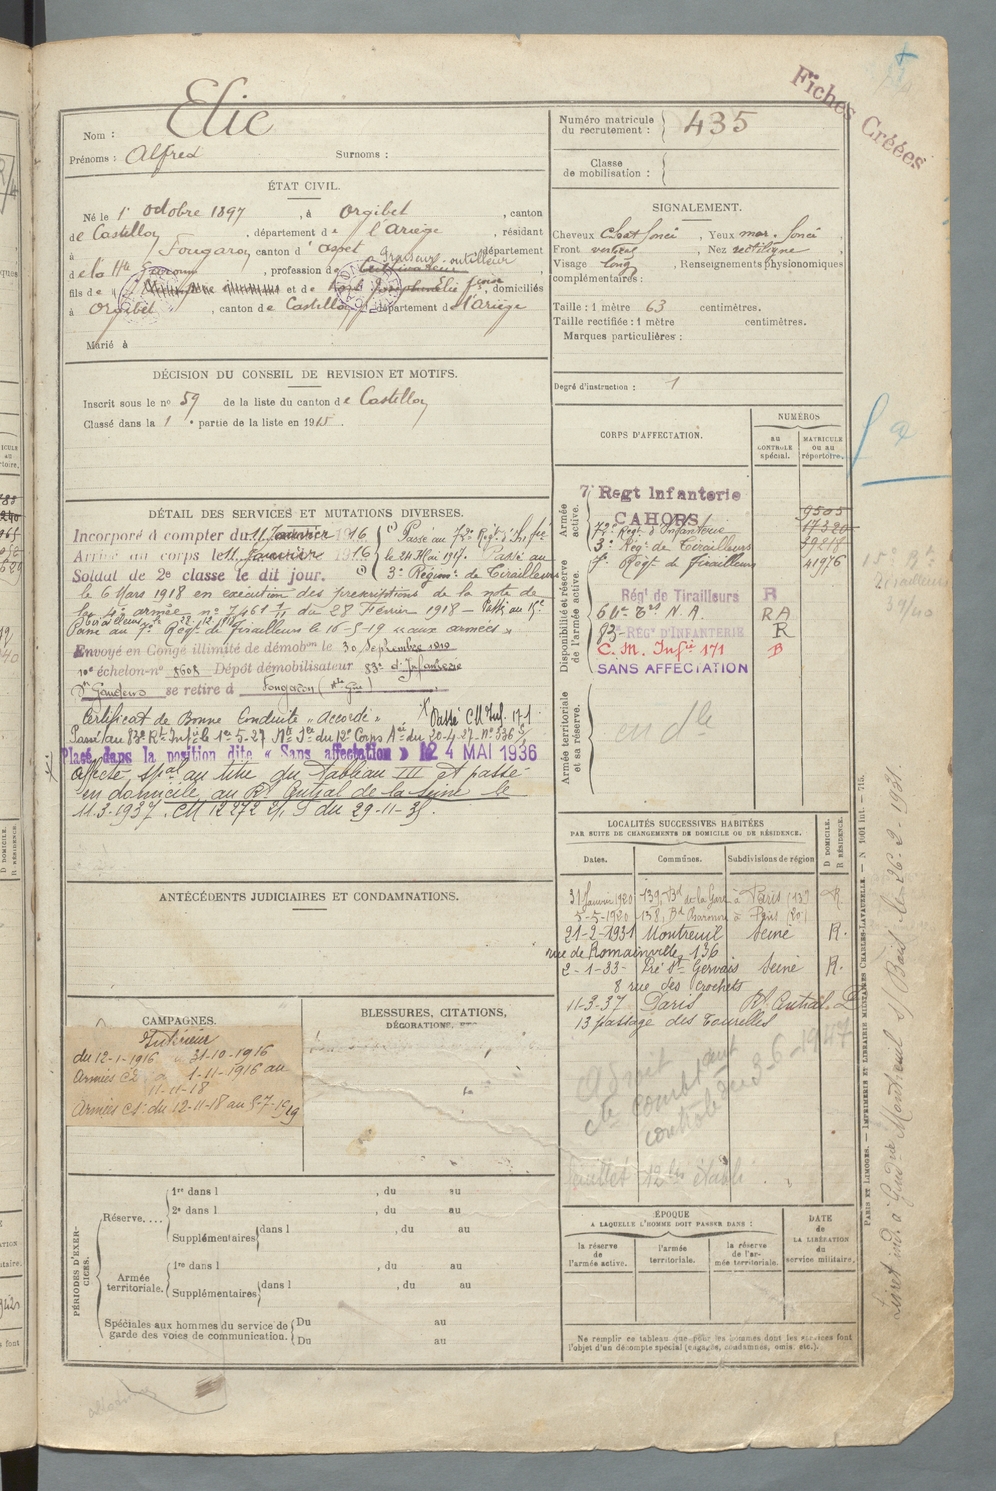 Fiches Créées
Nom : Elie
Prénoms : Alfred Surnoms :
ÉTAT CIVIL.
Né le 1er octobre 1897, à Orgibet, canton
de Castillon, département de l'Ariège, résidant
à Fougaron canton d'Aspet département
de la Hte Garonne, profession de Graisseur-outilleur
fils de et de, domiciliés
à Orgibet, canton de Castillon, département de l'Ariège
Marié à
DÉCISION DU CONSEIL DE REVISION ET MOTIFS.
Inscrit sous le no 59 de la liste du canton de Castillon
Classé dans la 1e partie de la liste en 1915.
DÉTAIL DES SERVICES ET MUTATIONS DIVERSES.
Incorporé à compter du 11 Janvier 1916
Arrivé au corps le 11 Janvier 1916
Soldat de 2e classe le dit jour.
(1) Passé au 72e Régt d'Infrie
le 24 Mai 1917. Passé au
3e Régiment de Tirailleurs
le 6 Mars 1918 en exécution des prescriptions de la note de
la 4e armée no 7461 du 28 Février 1918
Passé au 7e Régt de Tirailleurs le 16-5-19 "aux armées"
Envoyé en Congé illimité de démobon le 30 Septembre 1919
10e échelon-no 8608 Dépôt démobilisateur 83e d'Infanterie
St Gaudens se retire à Fougaron (Hte Gne)
Certificat de Bonne Conduite "Accordé"
Passé CM Inf. 171
Passé au 83e Rt Inf le 1er-5-27
Placé dans la position dite « Sans affectation » le 24 MAI 1936
Affecté spal au titre du Tableau III et passé
en domicile au Rt Central de la Seine le
11.3.1937. CM 12272 du 29-11-35.
ANTÉCÉDENTS JUDICIAIRES ET CONDAMNATIONS.
CAMPAGNES.
Intérieur
du 12-1-1916 à 31-10-1916
Armées C2 1-11-1916 au
11-11-18
Armées C1: du 12-11-18 au 5-7-1919
BLESSURES, CITATIONS,
DÉCORATIONS, ETC.
PÉRIODES D'EXERCICES.
Réserve....
1re dans l , du au
2e dans l , du au
Supplémentaires dans l , du au
Armée territoriale.
1re dans l , du au
Supplémentaires dans l , du au
Spéciales aux hommes du service de
garde des voies de communication.
Du au
Du au
Numéro matricule
du recrutement : 435
Classe
de mobilisation :
SIGNALEMENT.
Cheveux Chat foncé, Yeux mar. foncé
Front vertical, Nez rectiligne
Visage long, Renseignements physionomiques
complémentaires :
Taille : 1 mètre 63 centimètres.
Taille rectifiée : 1 mètre centimètres.
Marques particulières :
Degré d'instruction : 1
CORPS D'AFFECTATION.
NUMÉROS
au CONTROLE spécial.
MATRICULE ou au répertoire.
Armée active.
7e Regt Infanterie
CAHORS 9505
72e Régt d'Infanterie 17320
3e Régt de Tirailleurs 19218
7e Régt de Tirailleurs 41976
Disponibilité et réserve de l'armée active.
Régt de Tirailleurs R
64e Ters N.A. RA
83e RÉGt D'INFANTERIE R
C.M. Infie 171 B
SANS AFFECTATION
Armée territoriale et sa réserve.
LOCALITÉS SUCCESSIVES HABITÉES
PAR SUITE DE CHANGEMENTS DE DOMICILE OU DE RÉSIDENCE.
Dates. Communes. Subdivisions de région
D DOMICILE. R RÉSIDENCE.
31 Janvier 1920 139, Bd de la Gare à Paris (13e) R
5-5-1920 138, Bd Davout à Paris (20e)
21-2-1931 Montreuil Seine R.
rue de Romainville, 136
2-1-33- Pré St Gervais Seine R.
8 rue des Crochets
11-3-37 Paris Rt Central D
13 passage des Tourelles
ÉPOQUE
A LAQUELLE L'HOMME DOIT PASSER DANS :
la réserve de l'armée active.
l'armée territoriale.
la réserve de l'armée territoriale.
DATE de LA LIBÉRATION du service militaire.
Ne remplir ce tableau que pour les hommes dont les services font
l'objet d'un décompte spécial (engagés, condamnés, omis, etc.).
PARIS ET LIMOGES. — IMPRIMERIE ET LIBRAIRIE MILITAIRES CHARLES-LAVAUZELLE. — N° 1001 int. — 715.